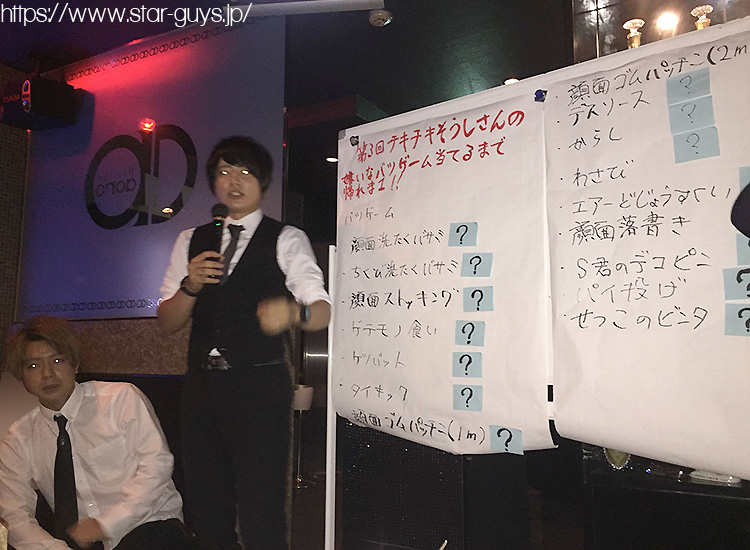 https://www.star-guys.jp/
第3回チキチキそうしさんの
嫌いなバツゲーム当てるまで
帰れま工!!
バツゲーム
顔面洗たくバサミ ?
・ちくび洗たくバサミ ?
・顔面ストッキング ?
・ゲテモノ食い ?
・ケツバット ?
・タイキック ?
顔面ゴムパッチン(1m) ?
・顔面ゴムパッチン(2m
・デスソース ?
・からし ?
・わさび ?
・エアーどじょうすくい
・顔面落書き
・S君のデコピン ?
・パイ投げ ?
・せつこのビンタ ?